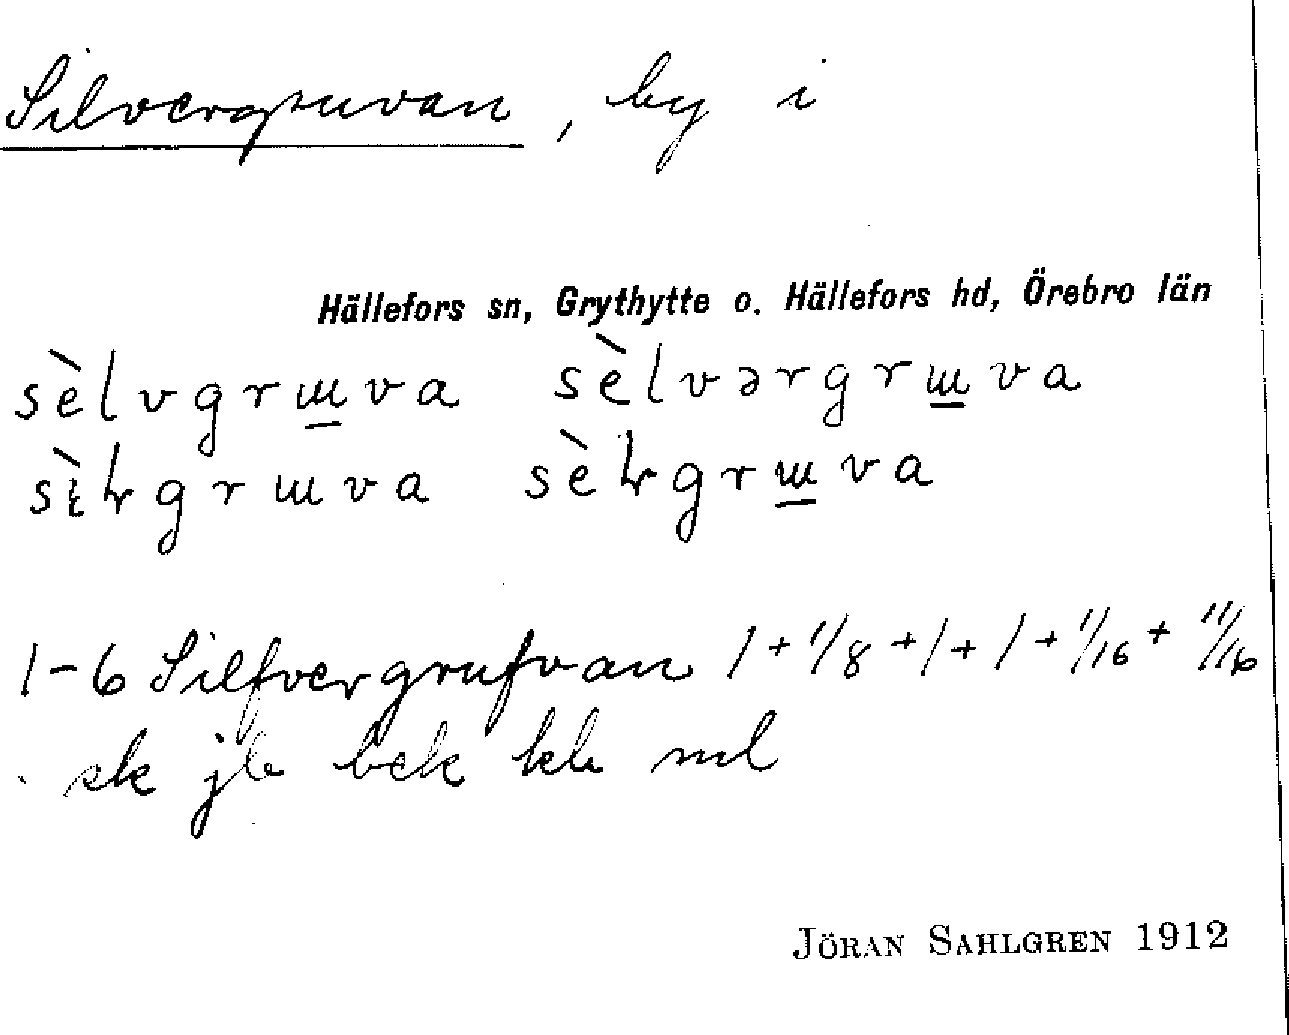 Silvergruvan, by i
Hällefors sn, Grythytte o. Hällefors hd, Örebro län
sèlvgrɯ̲va sèlvərgrɯ̲va
grɯva grɯ̲va
1-6 Silfvergrufvan 1 + 1/8 + 1 + 1 + 1/16 + 11/16
sk jb bek kb ml
JÖRAN SAHLGREN 1912